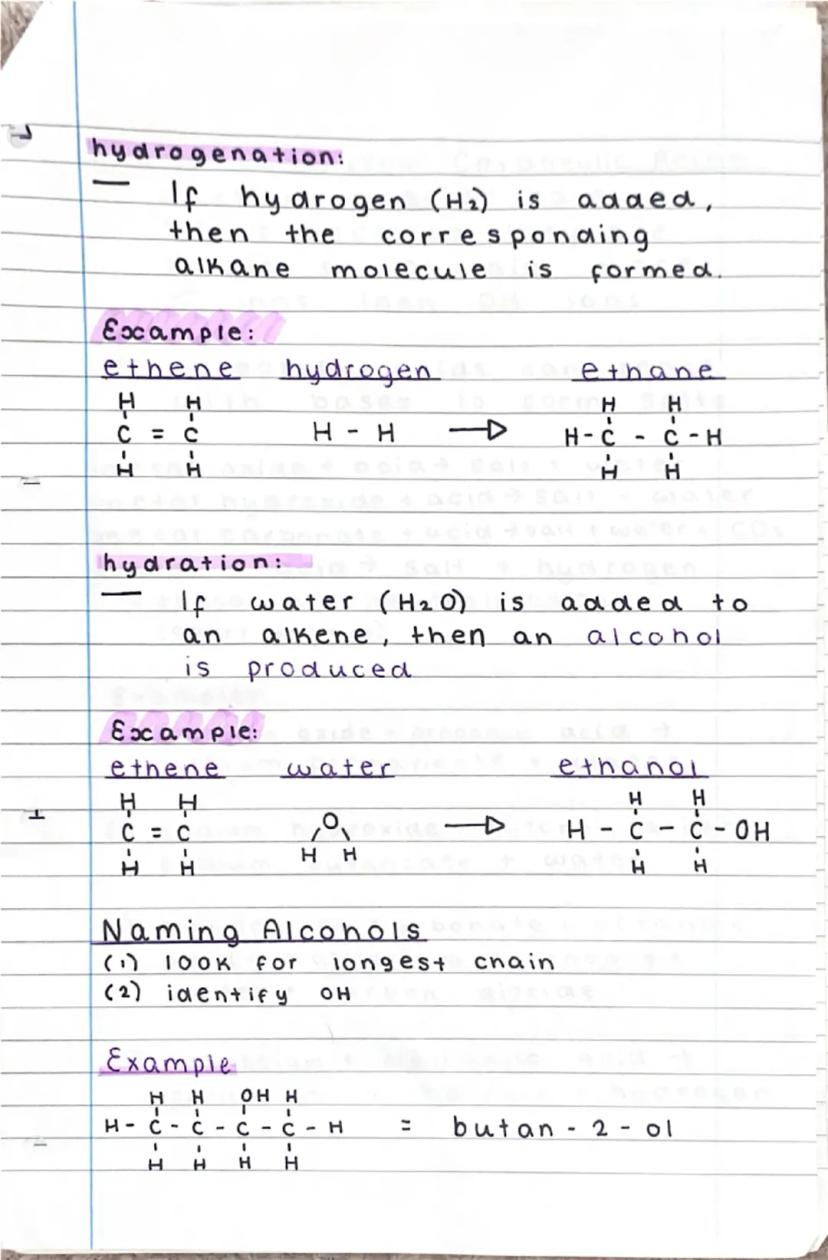 hydrogenation:
— If hydrogen (H₂) is added,
then the corresponding
alkane molecule is formed.
Example:
ethene hydrogen ethane
H H H H
C = C H - H → H - C - C - H
H H H H
hydration:
— If water (H₂O) is added to
an alkene, then an alcohol
is produced
Example:
ethene water ethanol
H H O H H
C = C H H → H - C - C - OH
H H H H
Naming Alcohols
(1) look for longest chain
(2) identify OH
Example
H H OH H
H - C - C - C - C - H = butan - 2 - ol
H H H H